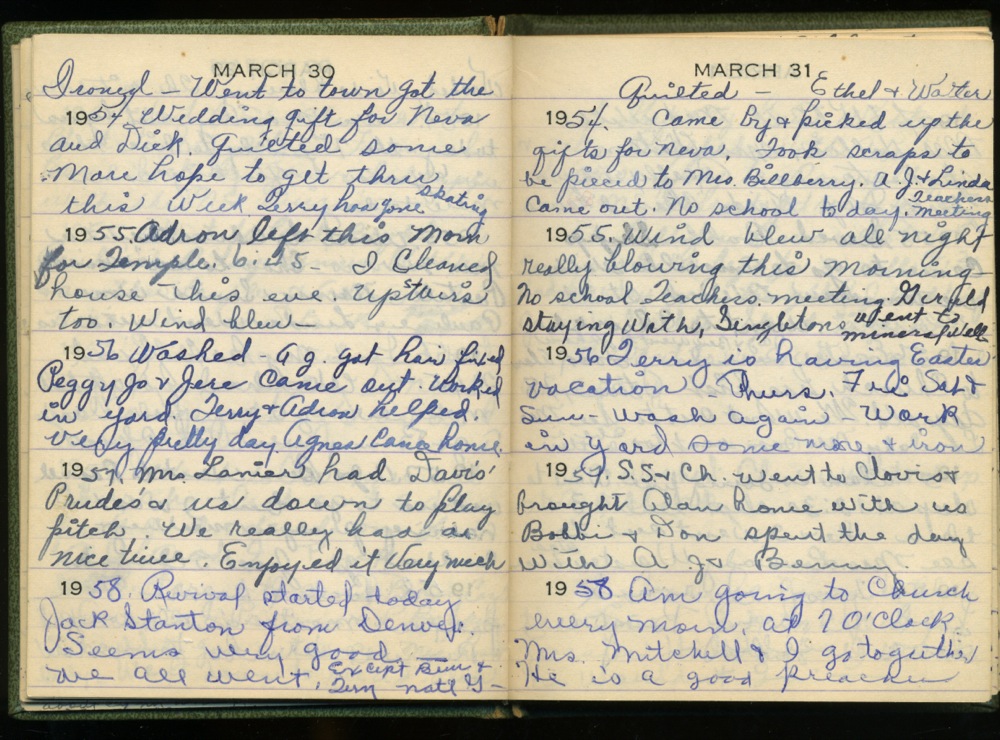 MARCH 30
Ironed – Went to town got the
1954. Wedding gift for Neva
and Dick. Quilted some
More hope to get thru
this Week. Terry has gone skating
1955. Adron left this Morn
for Temple. 6:45 – I Cleaned
house this eve. Upstairs
too. Wind blew –
1956 Washed – A J. got hair fixed
Peggy Jo & Jere Came out. Worked
in yard. Terry & Adron helped.
Very pretty day Agnes Came home.
1957. Mrs. Lanier had Davis'
Prudes & us down to play
pitch. We really had a
nice time. Enjoyed it Very much
1958. Revival started today
Jack Stanton from Denver.
Seems very good
We all went. Except &
Terry natl G –
MARCH 31
Quilted – Ethel & Walter
1954. Came by & picked up the
gifts for Neva. Took scraps to
be pieced to Mrs. Billberry. A J. & Linda
Came out. No school to day. Teachers Meeting
1955. Wind blew all night
really blowing this morning –
No school Teachers meeting. Gerald
staying With Singletons went to
mineral Wells
1956 Terry is having Easter
vacation – Thurs. Fri Sat &
Sun – Wash again – Work
in yard some more & iron
1957. S.S. & Ch. went to Clovis &
brought Alan home with us
Bobbi & Don spent the day
With A J & Benny
1958 Am going to Church
every morn. at 7 O'Clock
Mrs. Mitchell & I go together
He is a good preacher